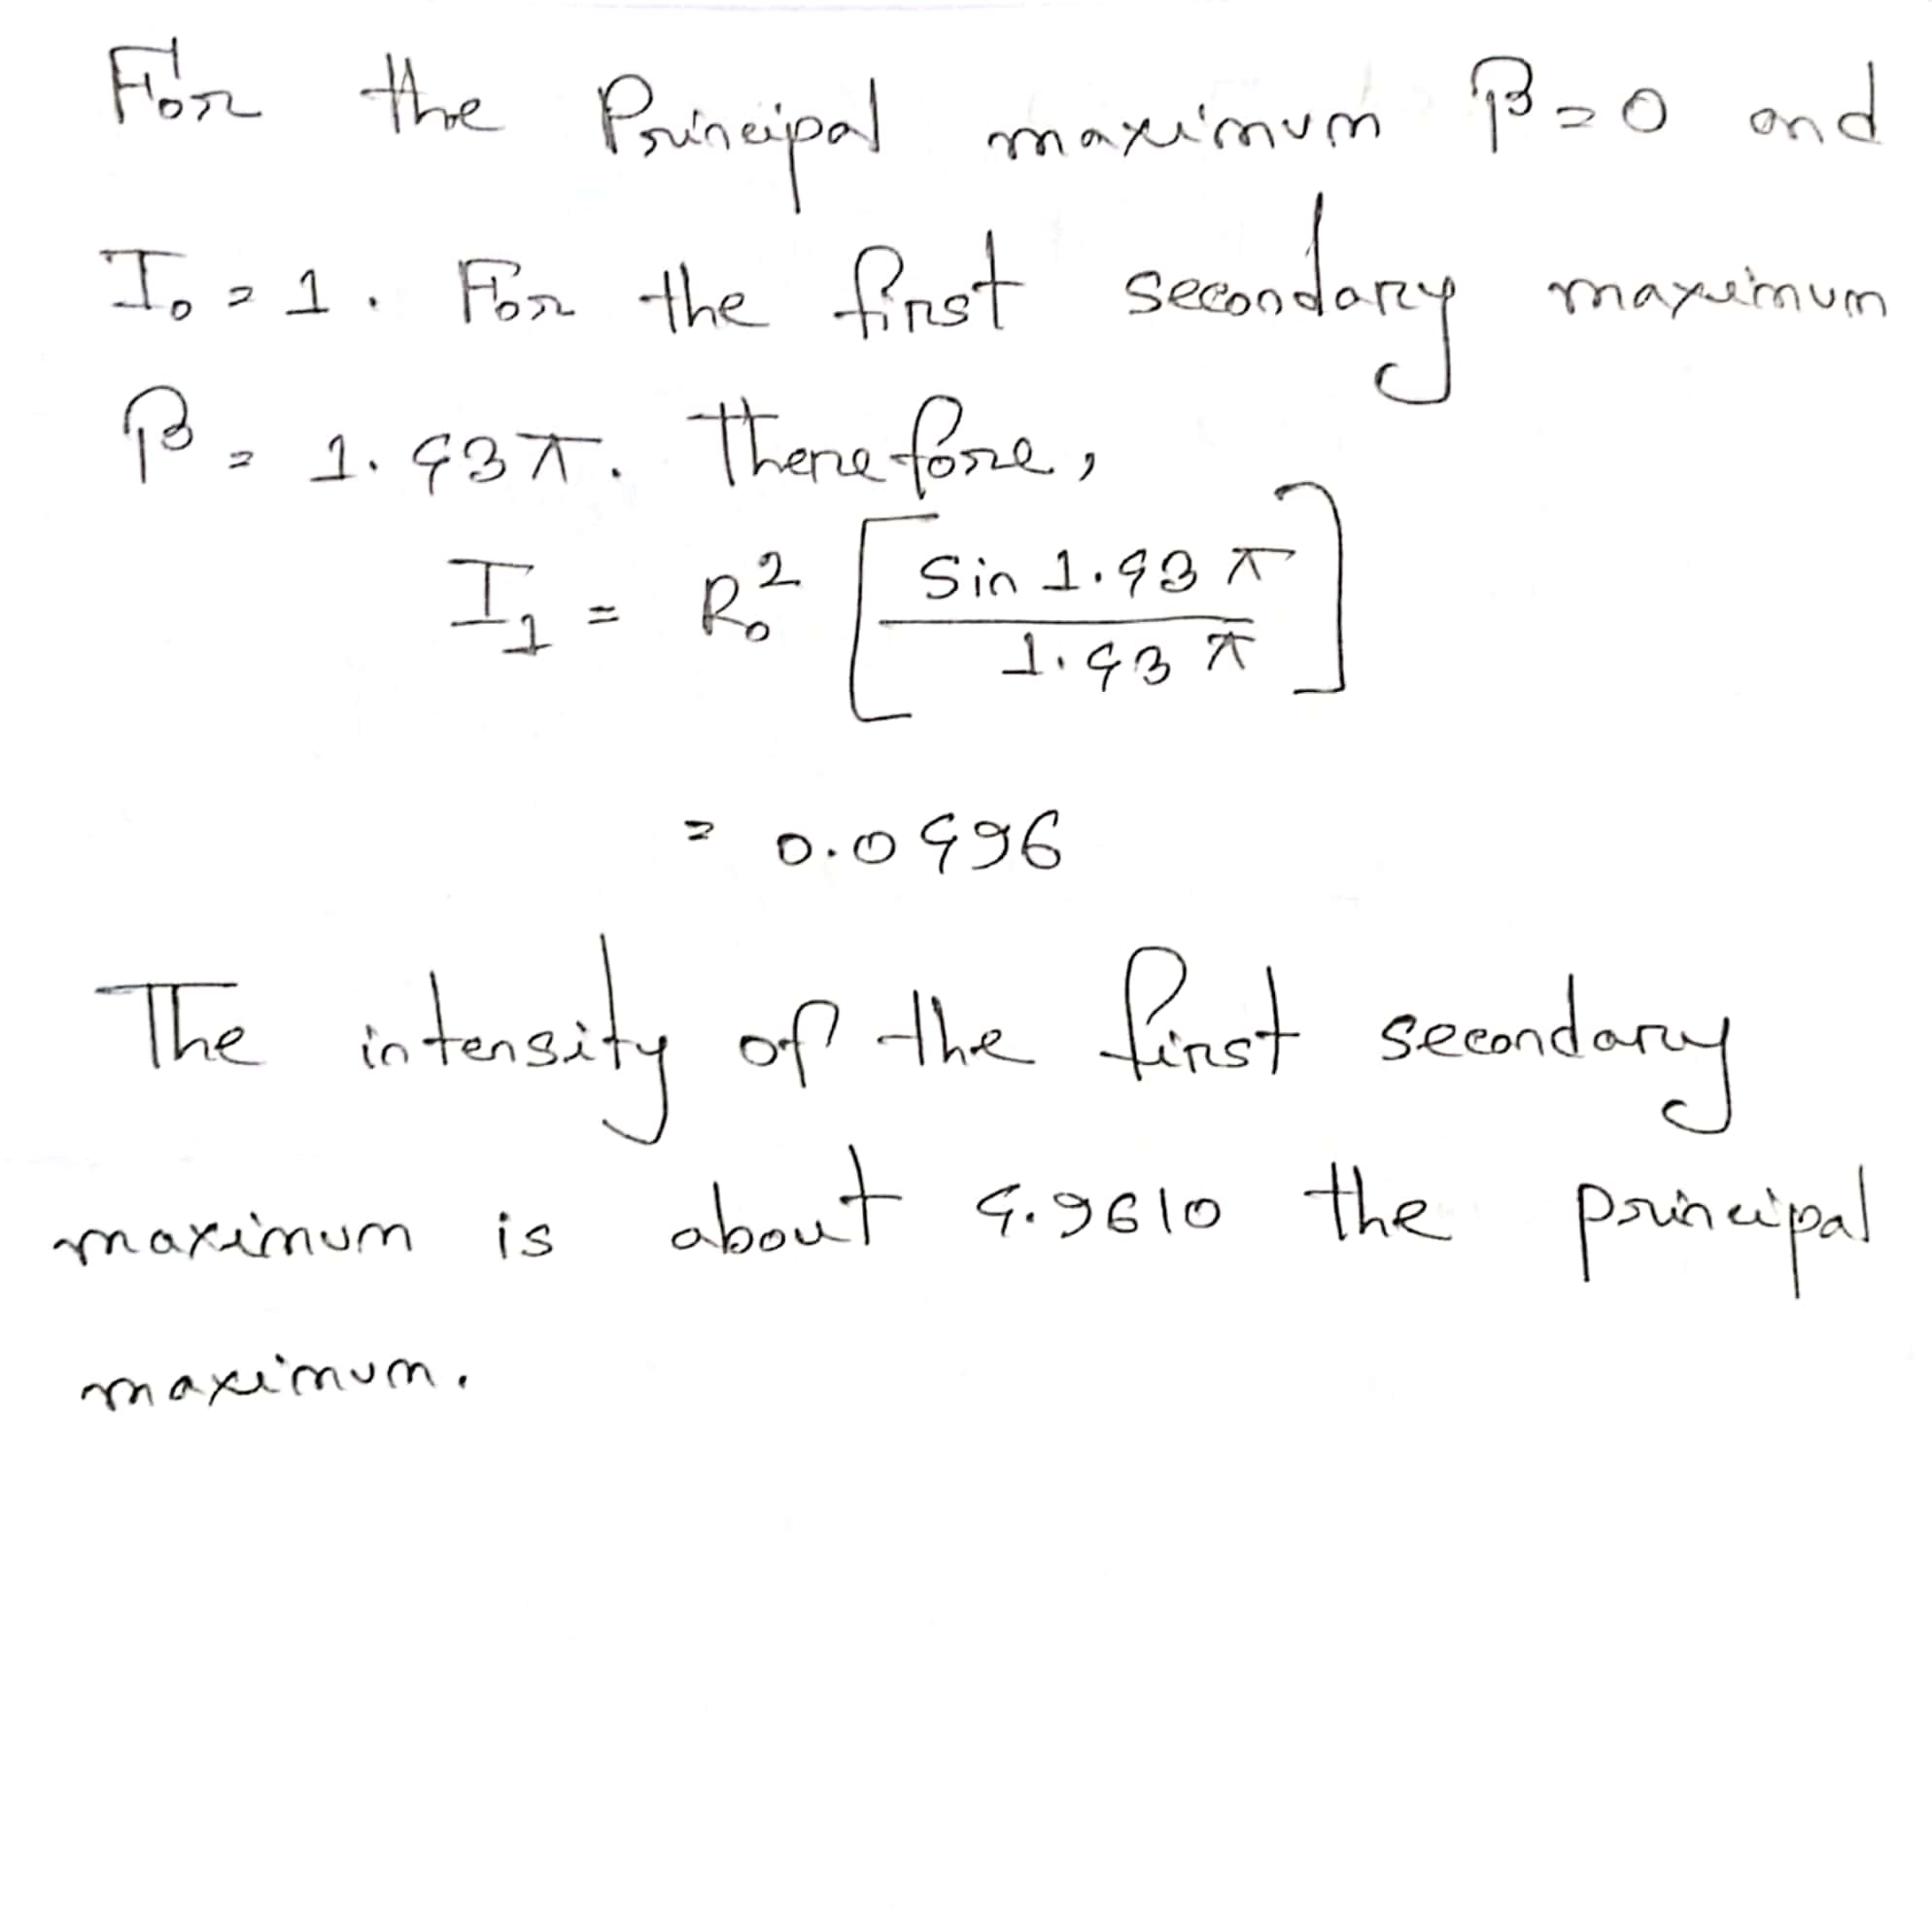 For the Principal maximum β = 0 and
I₀ = 1. For the first secondary maximum
β = 1.43π. Therefore,
I₁ = R₀² [ Sin 1.43 π / 1.43 π ]
= 0.0496
The intensity of the first secondary
maximum is about 4.9610 the principal
maximum.